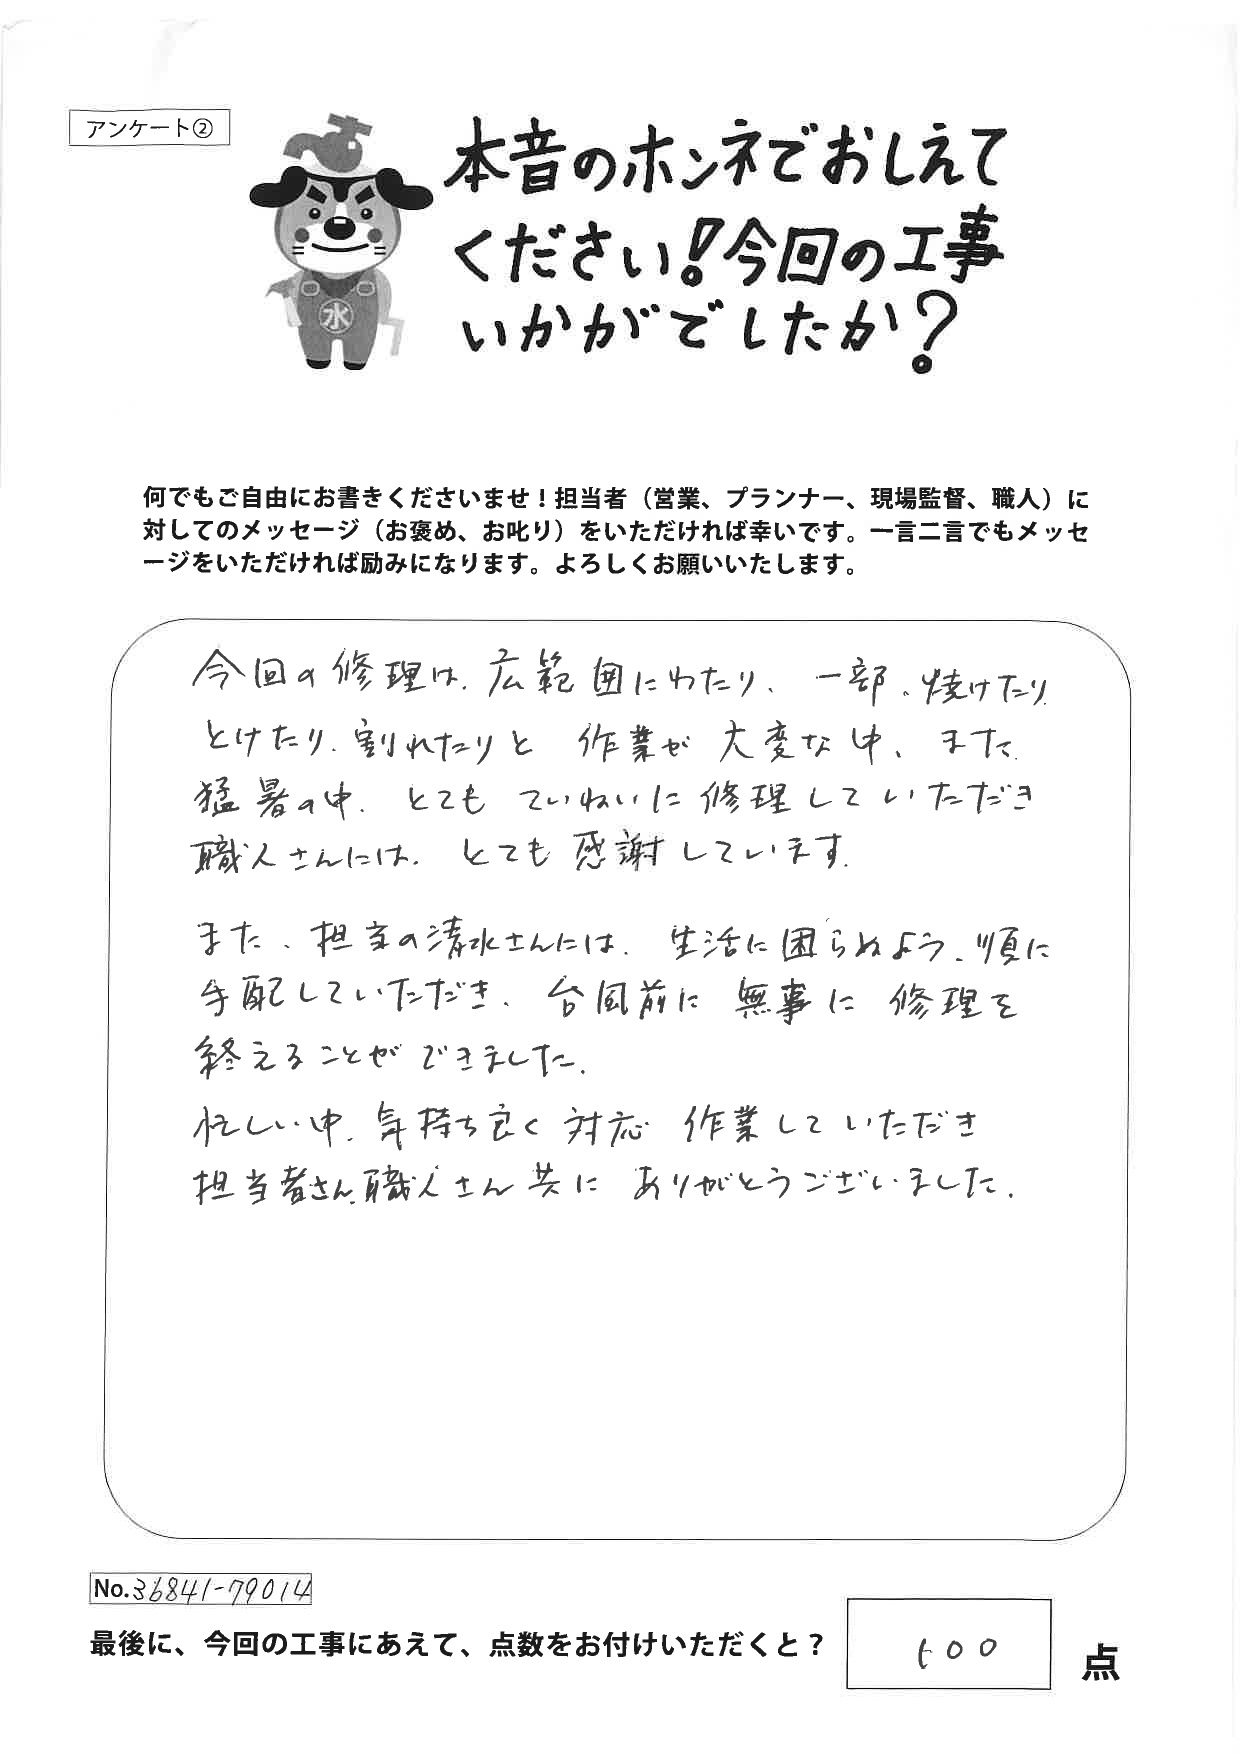 アンケート②
本音のホンネでおしえて
ください!今回の工事
いかがでしたか?
水
何でもご自由にお書きくださいませ!担当者(営業、プランナー、現場監督、職人)に
対してのメッセージ(お褒め、お叱り)をいただければ幸いです。一言二言でもメッセ
ージをいただければ励みになります。よろしくお願いいたします。
今回の修理は、広範囲にわたり、一部、焼けたり
とけたり、割れたりと 作業が大変な中、また、
猛暑の中、とても ていねいに修理していただき
職人さんには、とても感謝しています。
また、担当の清水さんには、生活に困らぬよう、順に
手配していただき、台風前に無事に修理を
終えることができました。
忙しい中、気持ち良く対応 作業していただき
担当者さん、職人さん共に ありがとうございました。
No.36841-79014
最後に、今回の工事にあえて、点数をお付けいただくと?
点